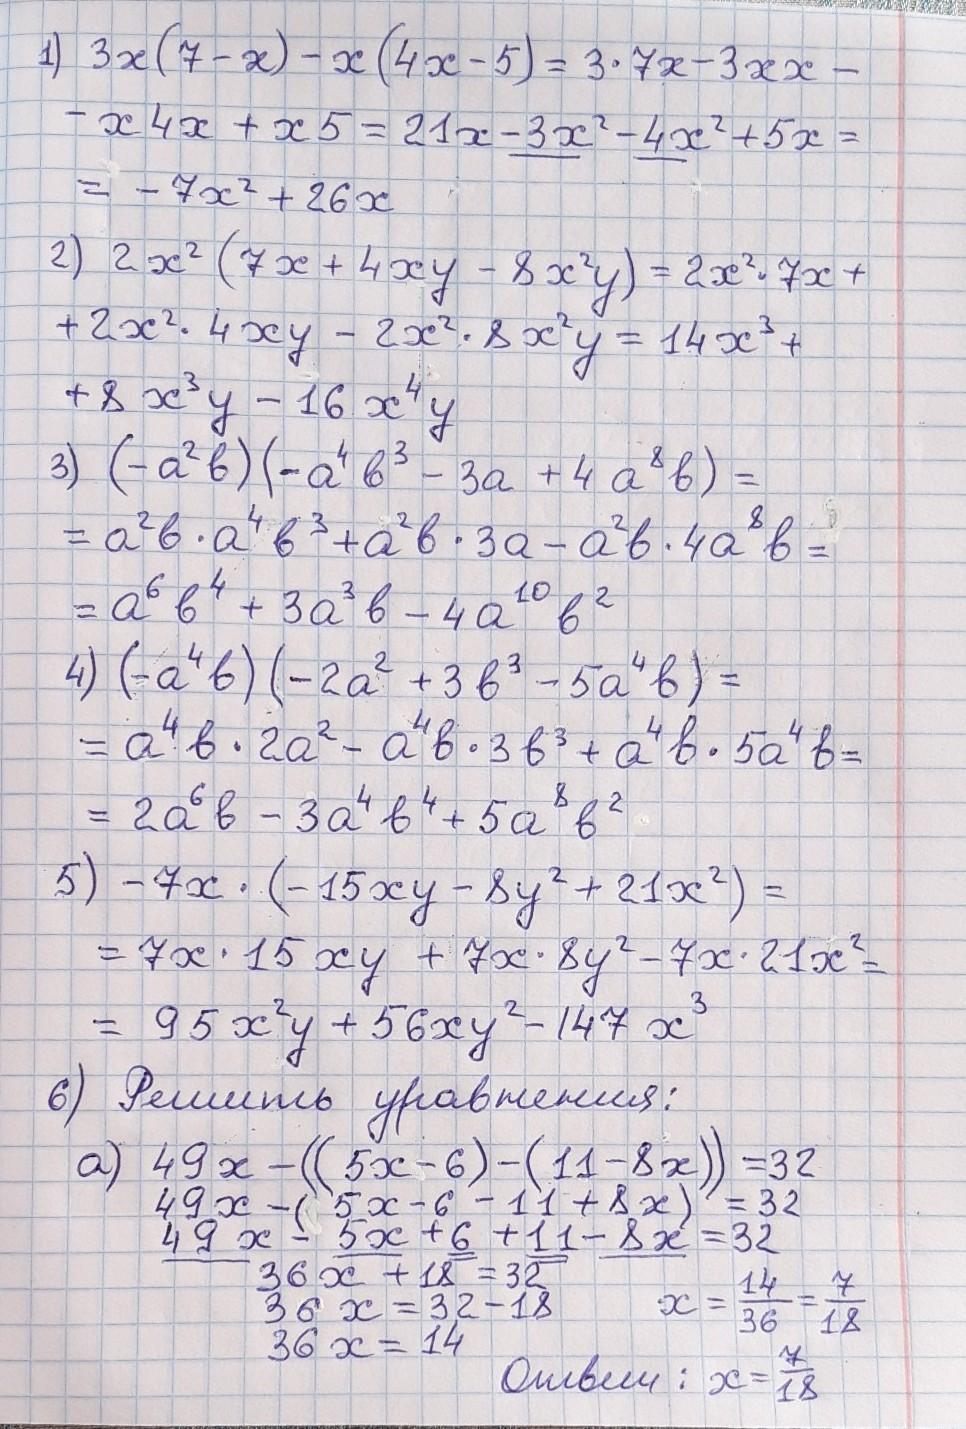 1) 3x(7-x)-x(4x-5)=3·7x-3xx-
-x4x+x5=21x-3x²-4x²+5x=
=-7x²+26x
2) 2x²(7x+4xy-8x²y)=2x²·7x+
+2x²·4xy-2x²·8x²y=14x³+
+8x³y-16x⁴y
3) (-a²b)(-a⁴b³-3a+4a⁸b)=
=a²b·a⁴b³+a²b·3a-a²b·4a⁸b=
=a⁶b⁴+3a³b-4a¹⁰b²
4) (-a⁴b)(-2a²+3b³-5a⁴b)=
=a⁴b·2a²-a⁴b·3b³+a⁴b·5a⁴b=
=2a⁶b-3a⁴b⁴+5a⁸b²
5) -7x·(-15xy-8y²+21x²)=
=7x·15xy+7x·8y²-7x·21x²=
=95x²y+56xy²-147x³
6) Решить уравнения:
а) 49x-((5x-6)-(11-8x))=32
49x-(5x-6-11+8x)=32
49x-5x+6+11-8x=32
36x+18=32
36x=32-18 x=14/36=7/18
36x=14
Ответ: x=7/18